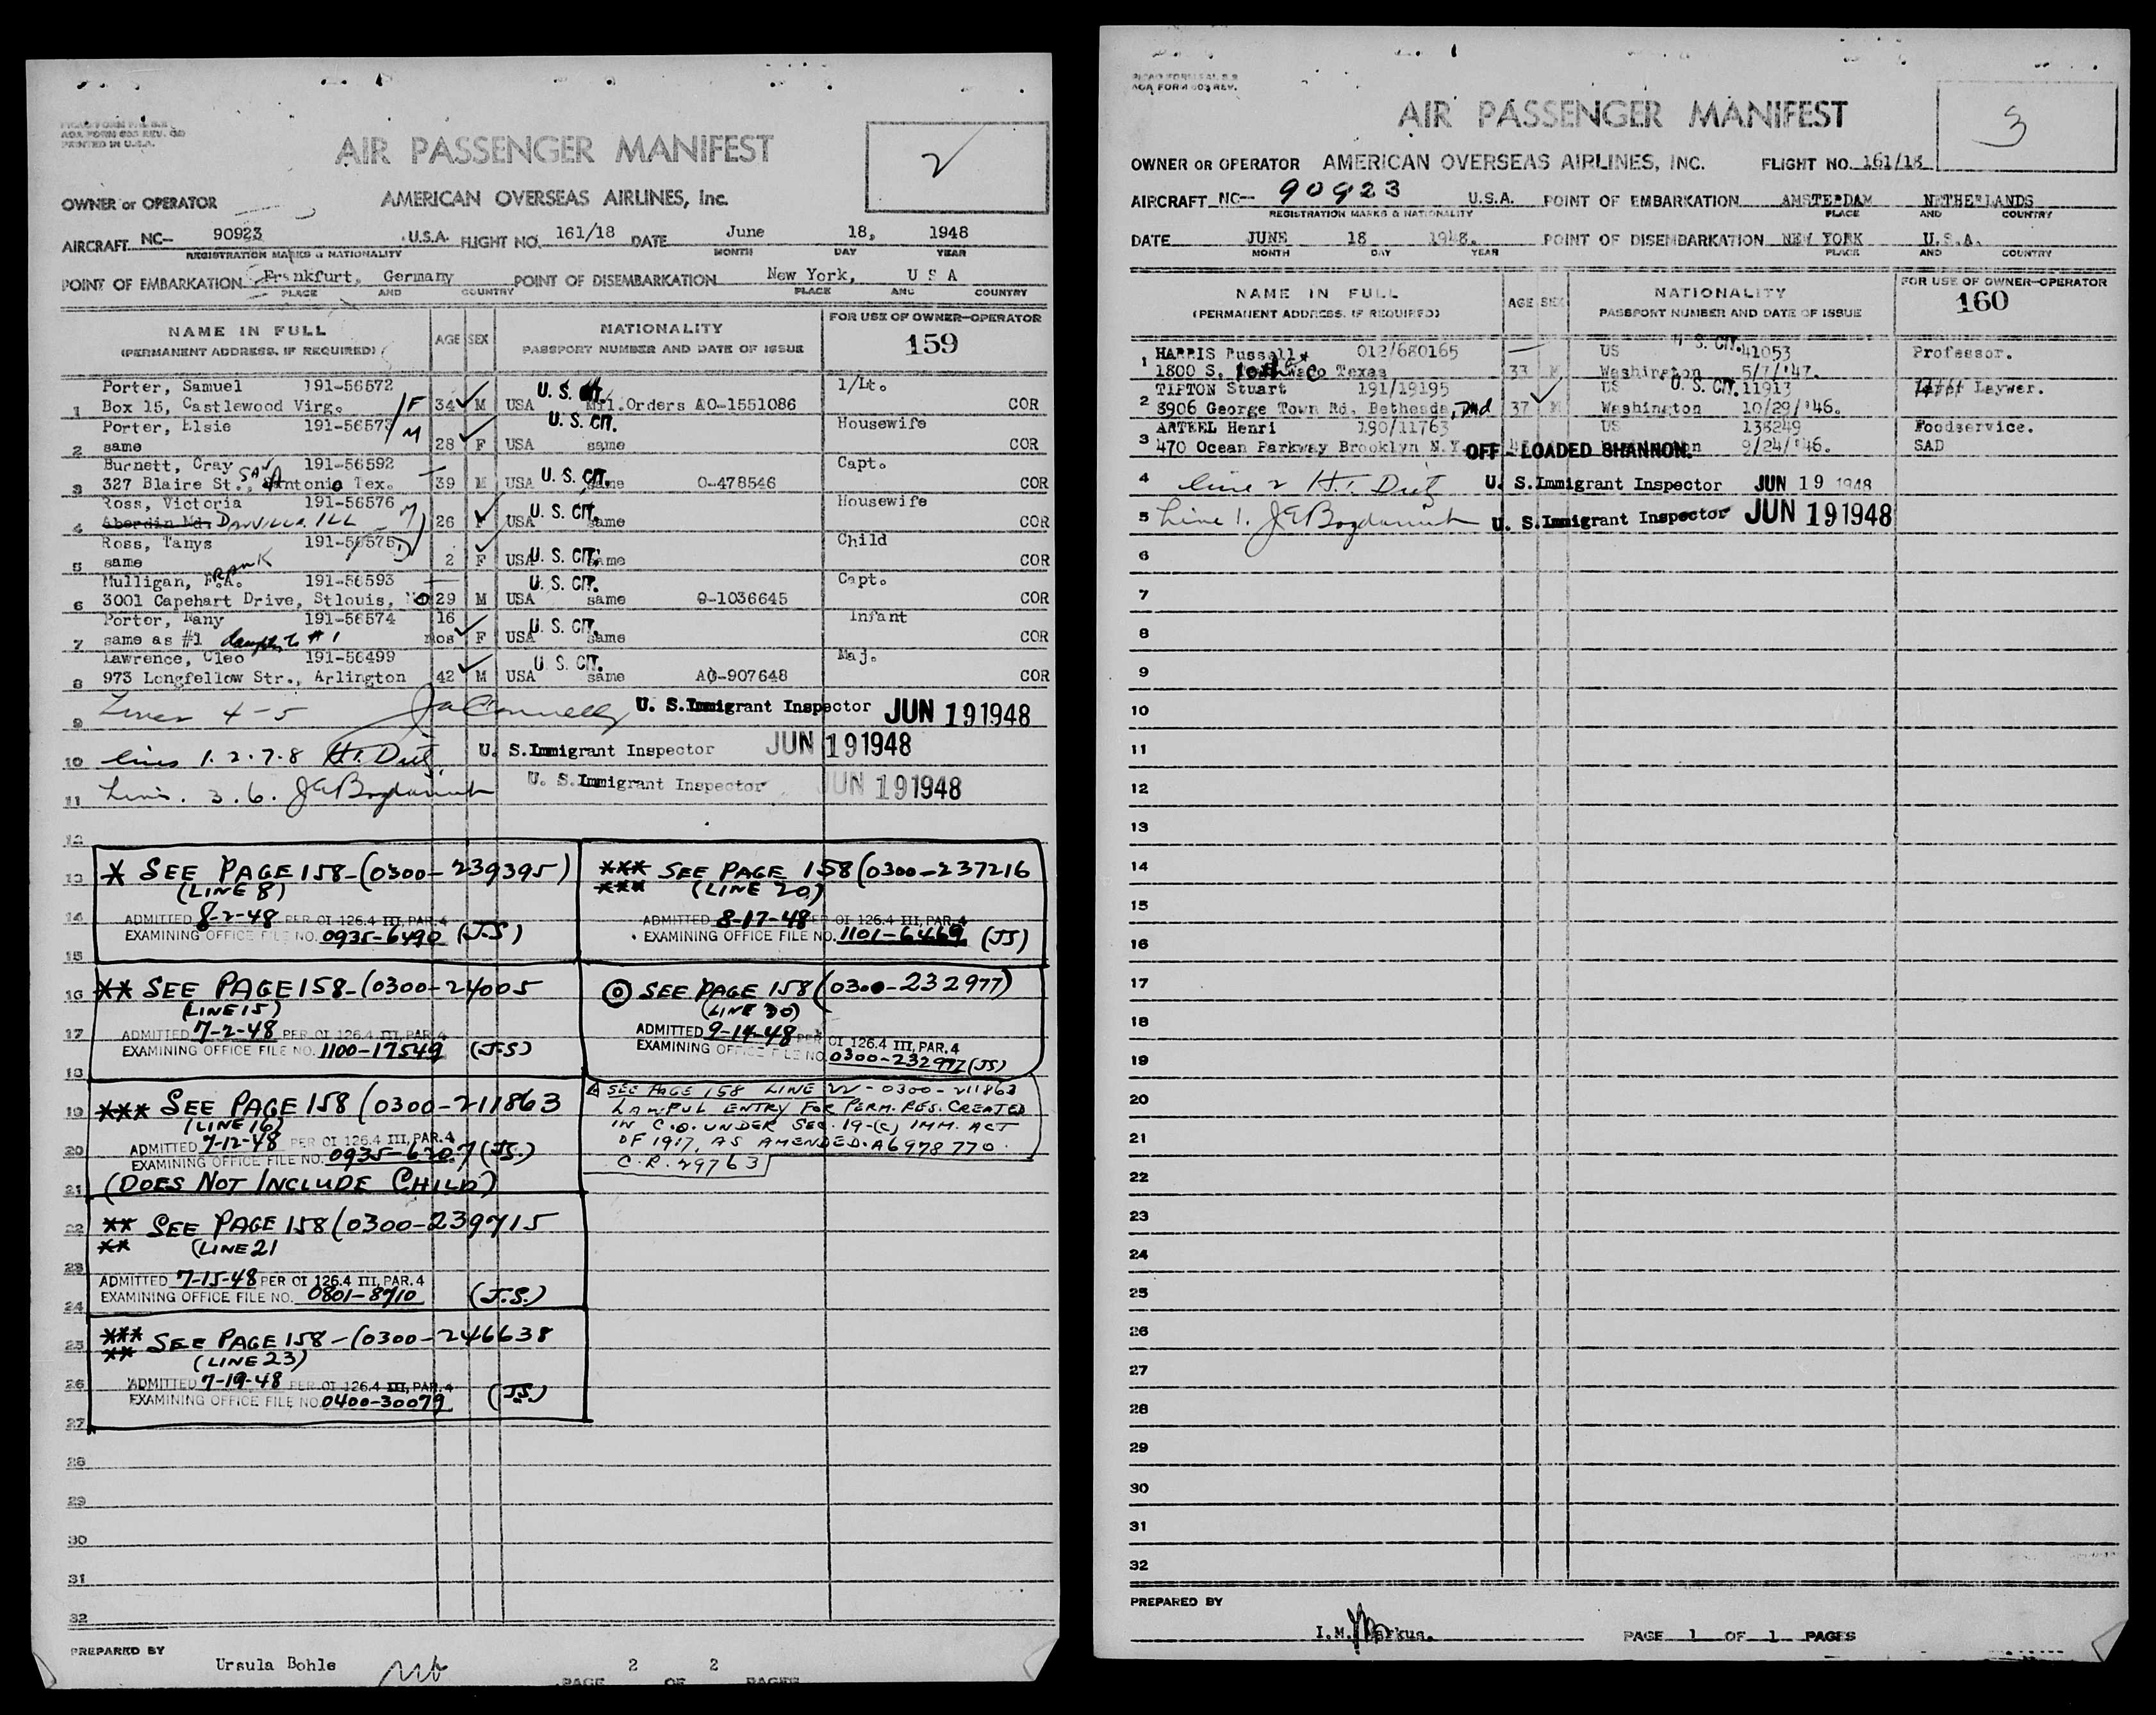 AIR PASSENGER MANIFEST
2
OWNER or OPERATOR AMERICAN OVERSEAS AIRLINES, Inc.
AIRCRAFT NC— 90923 U.S.A. FLIGHT NO. 161/18 DATE June 18, 1948
REGISTRATION MARKS & NATIONALITY MONTH DAY YEAR
POINT OF EMBARKATION Frankfurt, Germany POINT OF DISEMBARKATION New York, U S A
PLACE AND COUNTRY PLACE AND COUNTRY
NAME IN FULL AGE SEX NATIONALITY FOR USE OF OWNER—OPERATOR
(PERMANENT ADDRESS, IF REQUIRED) PASSPORT NUMBER AND DATE OF ISSUE 159
Porter, Samuel 191-56572 U. S. CIT. 1/Lt.
1 Box 15, Castlewood Virg. F 34 M USA Mil.Orders AO-1551086 COR
Porter, Elsie 191-56573 M U. S. CIT. Housewife
2 same 28 F USA same COR
Burnett, Cray 191-56592 Capt.
3 327 Blaire St., SAN Antonio Tex. 39 M USA U. S. CIT. same O-478546 COR
Ross, Victoria 191-56576 U. S. CIT. Housewife
4 Aberdin Md. DANVILLE ILL 26 F USA same COR
Ross, Tanys 191-56575 Child
5 same 2 F USA U. S. CIT. same COR
Mulligan, F.A. FRANK 191-56593 U. S. CIT. Capt.
6 3001 Capehart Drive, Stlouis, MO 29 M USA same O-1036645 COR
Porter, Nany 191-56574 16 Infant
7 same as #1 mos F USA U. S. CIT. same COR
Lawrence, Cleo 191-56499 U. S. CIT. Maj.
8 973 Longfellow Str., Arlington 42 M USA same AO-907648 COR
9 Lines 4-5 U. S. Immigrant Inspector JUN 19 1948
10 lines 1.2.7.8 H.T. Dietz U. S. Immigrant Inspector JUN 19 1948
11 Lines. 3.6. U. S. Immigrant Inspector JUN 19 1948
12
13 * SEE PAGE 158-(0300-239395)
(LINE 8)
14 ADMITTED 8-2-48 PER OI 126.4 III, PAR. 4
EXAMINING OFFICE FILE NO. 0935-6490 (J.S)
15
16 ** SEE PAGE 158-(0300-24005
(LINE 15)
17 ADMITTED 7-2-48 PER OI 126.4 III, PAR. 4
EXAMINING OFFICE FILE NO. 1100-17549 (J.S)
18
19 *** SEE PAGE 158 (0300-211863
(LINE 16)
20 ADMITTED 7-12-48 PER OI 126.4 III, PAR. 4
EXAMINING OFFICE FILE NO. 0935-6207 (J.S.)
21 (DOES NOT INCLUDE CHILD)
22 ** SEE PAGE 158 (0300-239715
** (LINE 21
23 ADMITTED 7-15-48 PER OI 126.4 III, PAR. 4
EXAMINING OFFICE FILE NO. 0801-8710 (J.S.)
24
25 *** SEE PAGE 158-(0300-246638
** (LINE 23)
26 ADMITTED 7-19-48 PER OI 126.4 III, PAR. 4
EXAMINING OFFICE FILE NO. 0400-30079 (J.S)
27
28
29
30
31
32
*** SEE PAGE 158 (0300-237216
*** (LINE 20)
ADMITTED 8-17-48 PER OI 126.4 III, PAR. 4
EXAMINING OFFICE FILE NO. 1101-6469 (JS)
SEE PAGE 158 (0300-232977)
(LINE 30)
ADMITTED 9-14-48 PER OI 126.4 III, PAR. 4
EXAMINING OFFICE FILE NO. 0300-232977 (JS)
SEE PAGE 158 LINE 22 - 0300-211863
LAWFUL ENTRY FOR PERM. RES. CREATED
IN C.O. UNDER SEC. 19-(C) IMM. ACT
OF 1917, AS AMENDED. A6978770.
C.R. 29763
PREPARED BY
Ursula Bohle
PAGE 2 OF 2 PAGES
AGA FORM 603 REV.
AIR PASSENGER MANIFEST
3
OWNER OR OPERATOR AMERICAN OVERSEAS AIRLINES, INC. FLIGHT NO. 161/18
AIRCRAFT NC— 90923 U.S.A. POINT OF EMBARKATION AMSTERDAM NETHERLANDS
REGISTRATION MARKS & NATIONALITY PLACE AND COUNTRY
DATE JUNE 18 1948. POINT OF DISEMBARKATION NEW YORK U.S.A.
MONTH DAY YEAR PLACE AND COUNTRY
NAME IN FULL AGE SEX NATIONALITY FOR USE OF OWNER—OPERATOR
(PERMANENT ADDRESS, IF REQUIRED) PASSPORT NUMBER AND DATE OF ISSUE 160
1 HARRIS Russell 012/680165 US U. S. CIT. 41053 Professor.
1800 S. Waco Texas 33 M Washington 5/7/'47.
2 TIPTON Stuart 191/19195 US U. S. CIT. 11913 Laywer.
3906 George Town Rd, Bethesda, Md 37 M Washington 10/29/'46.
3 ARTEEL Henri 190/11763 US 138249 Foodservice.
470 Ocean Parkway Brooklyn N.Y. OFF-LOADED SHANNON. 9/24/'46. SAD
4 line 2 H.T. Dietz U. S. Immigrant Inspector JUN 19 1948
5 Line 1. U. S. Immigrant Inspector JUN 19 1948
6
7
8
9
10
11
12
13
14
15
16
17
18
19
20
21
22
23
24
25
26
27
28
29
30
31
32
PREPARED BY
I.M. Markus.
PAGE 1 OF 1 PAGES